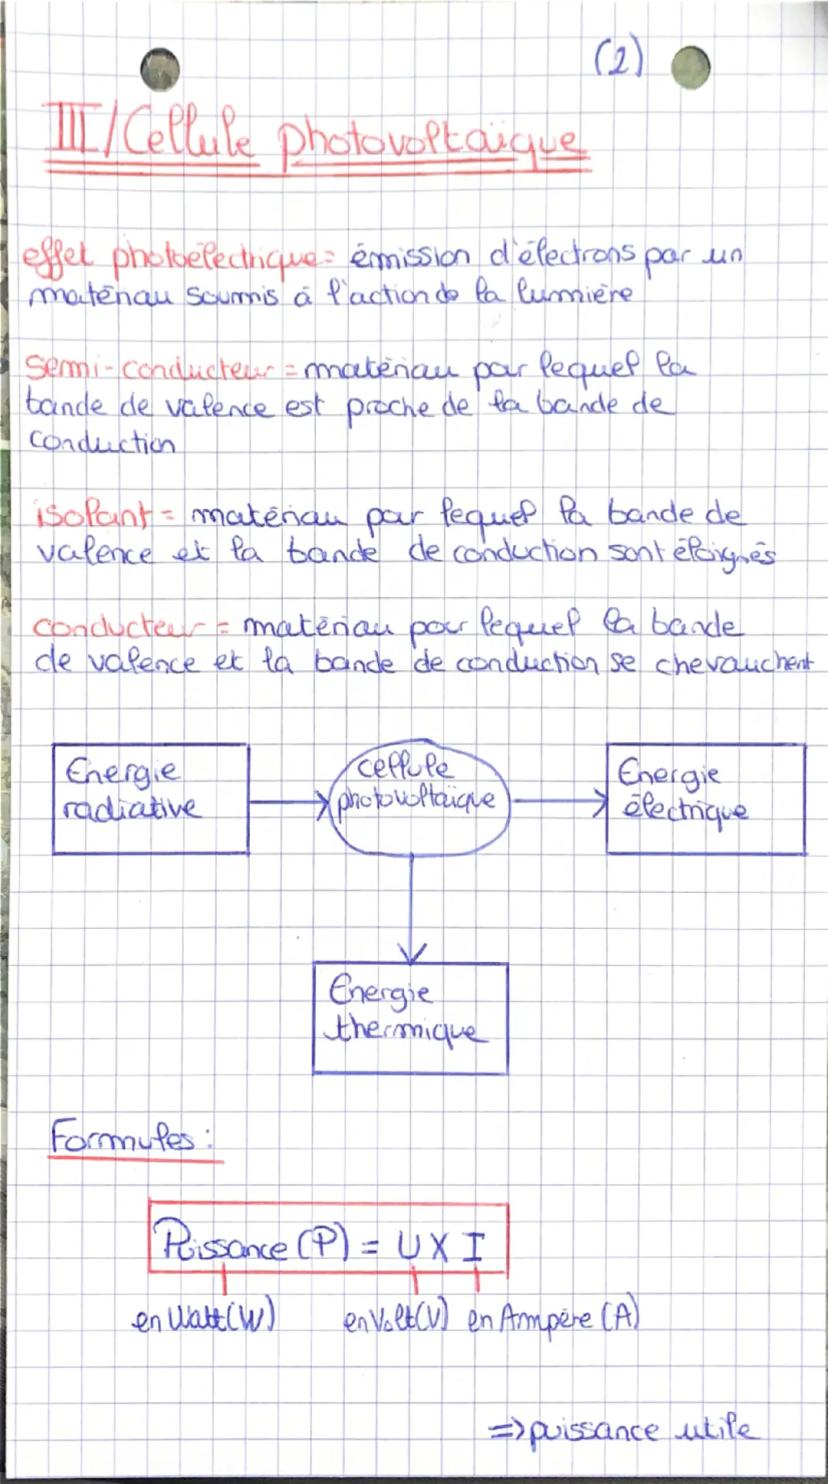 (2)
III/Cellule photovoltaïque
effet photoélectrique = émission d'électrons par un
matériau soumis à l'action de la lumière
semi-conducteur = matériau par lequel la
bande de valence est proche de la bande de
conduction
isolant = matériau par lequel la bande de
valence et la bande de conduction sont éloignés
conducteur = matériau pour lequel la bande
de valence et la bande de conduction se chevauchent
Energie
radiative
cellule
photovoltaïque
Energie
électrique
Energie
thermique
Formules :
Puissance (P) = U X I
en Watt (W) en Volt (V) en Ampère (A)
=> puissance utile